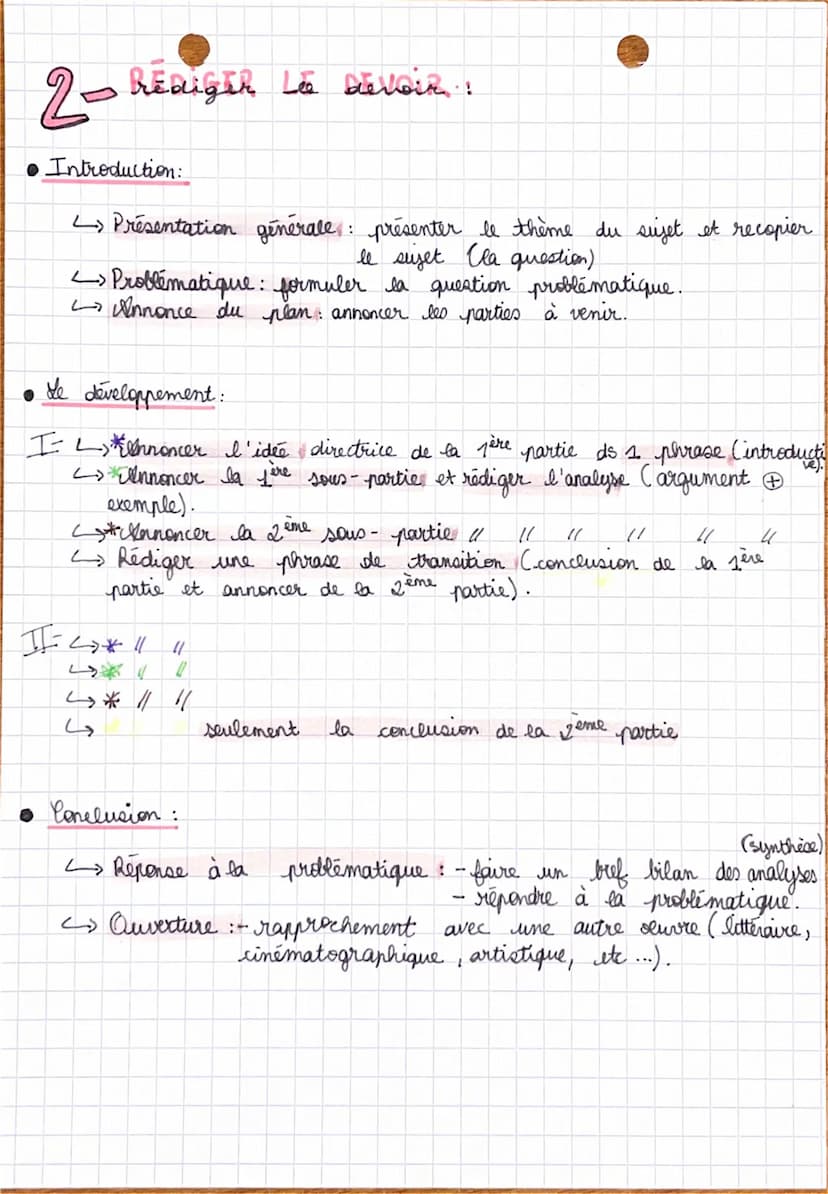 2- RÉDIGER LE DEVOIR :
• Introduction :
↳ Présentation générale : présenter le thème du sujet et recopier
le sujet (la question)
↳ Problématique : formuler la question problématique.
↳ Annonce du plan : annoncer les parties à venir.
• Le développement :
I- ↳ * Annoncer l'idée directrice de la 1ère partie ds 1 phrase (introducti
ve).
↳ * Annoncer la 1ère sous-partie et rédiger l'analyse (argument ⊕
exemple).
↳ * Annoncer la 2ème sous-partie // // // // // //
↳ Rédiger une phrase de transition (conclusion de la 1ère
partie et annoncer de la 2ème partie).
II- ↳ * // //
↳ * // //
↳ * // //
↳ seulement la conclusion de la 2ème partie
• Conclusion :
(synthèse)
↳ Réponse à la problématique : - faire un bref bilan des analyses
- répondre à la problématique.
↳ Ouverture : - rapprochement avec une autre oeuvre (littéraire,
cinématographique, artistique, etc ...).